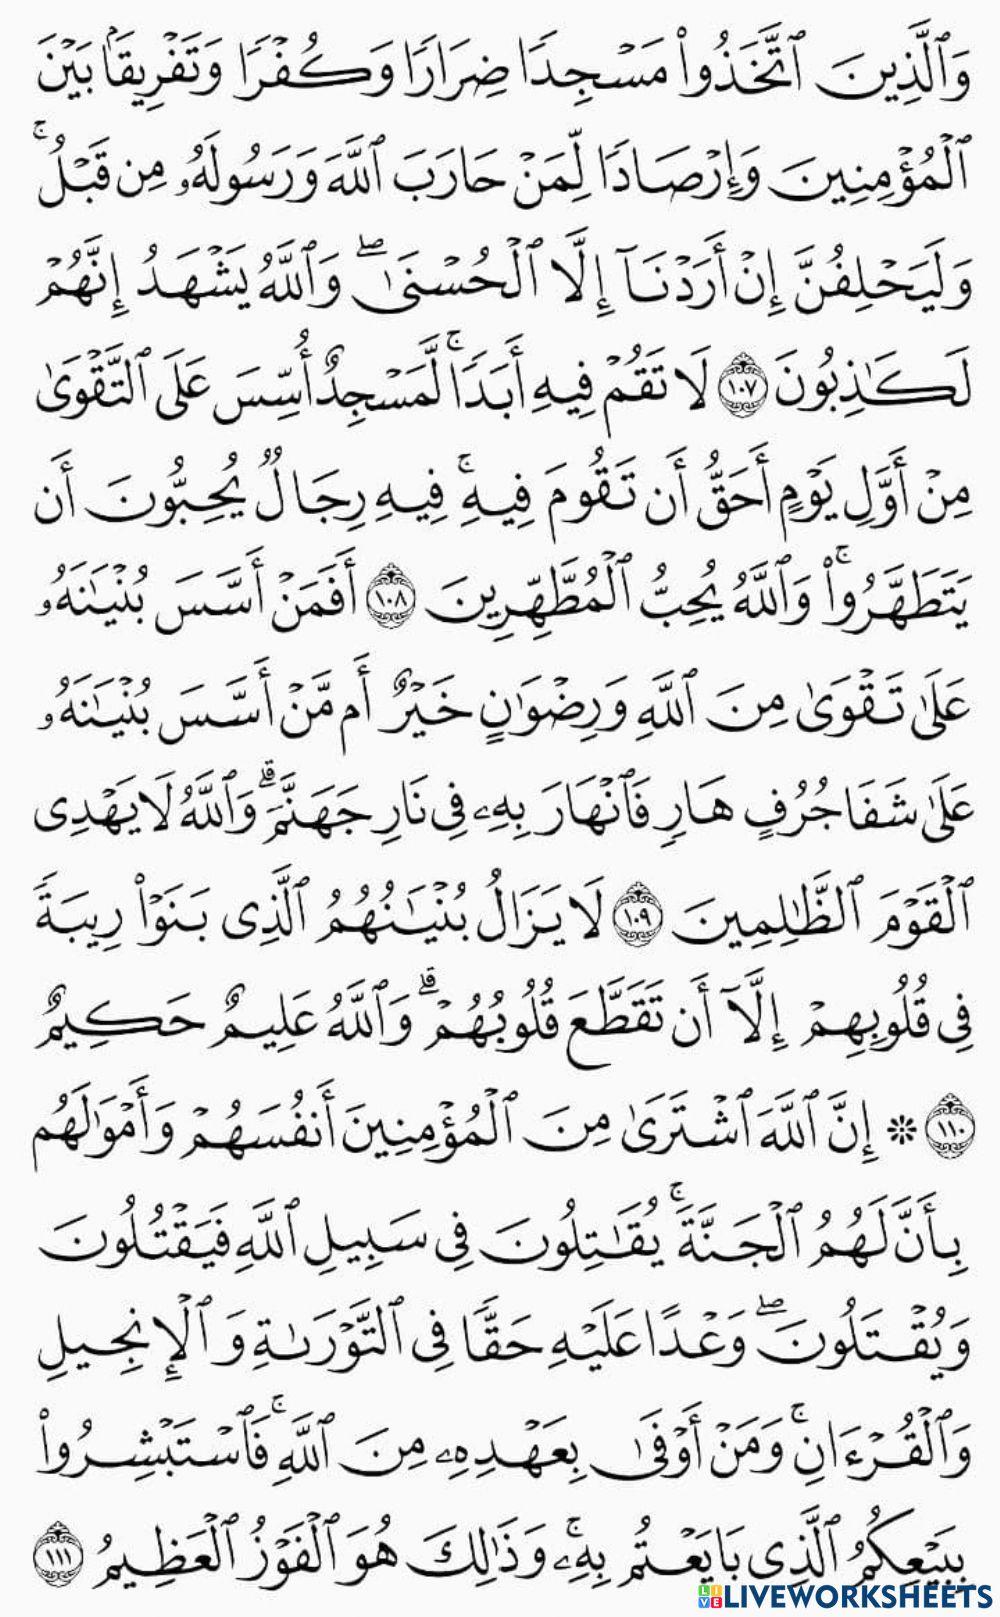 وَٱلَّذِينَ ٱتَّخَذُوا۟ مَسْجِدًا ضِرَارًا وَكُفْرًا وَتَفْرِيقًۢا بَيْنَ
ٱلْمُؤْمِنِينَ وَإِرْصَادًا لِّمَنْ حَارَبَ ٱللَّهَ وَرَسُولَهُۥ مِن قَبْلُ ۚ
وَلَيَحْلِفُنَّ إِنْ أَرَدْنَآ إِلَّا ٱلْحُسْنَىٰ ۖ وَٱللَّهُ يَشْهَدُ إِنَّهُمْ
لَكَـٰذِبُونَ ١٠٧ لَا تَقُمْ فِيهِ أَبَدًا ۚ لَّمَسْجِدٌ أُسِّسَ عَلَى ٱلتَّقْوَىٰ
مِنْ أَوَّلِ يَوْمٍ أَحَقُّ أَن تَقُومَ فِيهِ ۚ فِيهِ رِجَالٌ يُحِبُّونَ أَن
يَتَطَهَّرُوا۟ ۚ وَٱللَّهُ يُحِبُّ ٱلْمُطَّهِّرِينَ ١٠٨ أَفَمَنْ أَسَّسَ بُنْيَـٰنَهُۥ
عَلَىٰ تَقْوَىٰ مِنَ ٱللَّهِ وَرِضْوَٰنٍ خَيْرٌ أَم مَّنْ أَسَّسَ بُنْيَـٰنَهُۥ
عَلَىٰ شَفَا جُرُفٍ هَارٍ فَٱنْهَارَ بِهِۦ فِى نَارِ جَهَنَّمَ ۗ وَٱللَّهُ لَا يَهْدِى
ٱلْقَوْمَ ٱلظَّـٰلِمِينَ ١٠٩ لَا يَزَالُ بُنْيَـٰنُهُمُ ٱلَّذِى بَنَوْا۟ رِيبَةً
فِى قُلُوبِهِمْ إِلَّآ أَن تَقَطَّعَ قُلُوبُهُمْ ۗ وَٱللَّهُ عَلِيمٌ حَكِيمٌ
١١٠ ۞ إِنَّ ٱللَّهَ ٱشْتَرَىٰ مِنَ ٱلْمُؤْمِنِينَ أَنفُسَهُمْ وَأَمْوَٰلَهُم
بِأَنَّ لَهُمُ ٱلْجَنَّةَ ۚ يُقَـٰتِلُونَ فِى سَبِيلِ ٱللَّهِ فَيَقْتُلُونَ
وَيُقْتَلُونَ ۖ وَعْدًا عَلَيْهِ حَقًّا فِى ٱلتَّوْرَىٰةِ وَٱلْإِنجِيلِ
وَٱلْقُرْءَانِ ۚ وَمَنْ أَوْفَىٰ بِعَهْدِهِۦ مِنَ ٱللَّهِ ۚ فَٱسْتَبْشِرُوا۟
بِبَيْعِكُمُ ٱلَّذِى بَايَعْتُم بِهِۦ ۚ وَذَٰلِكَ هُوَ ٱلْفَوْزُ ٱلْعَظِيمُ ١١١
LIVE LIVEWORKSHEETS